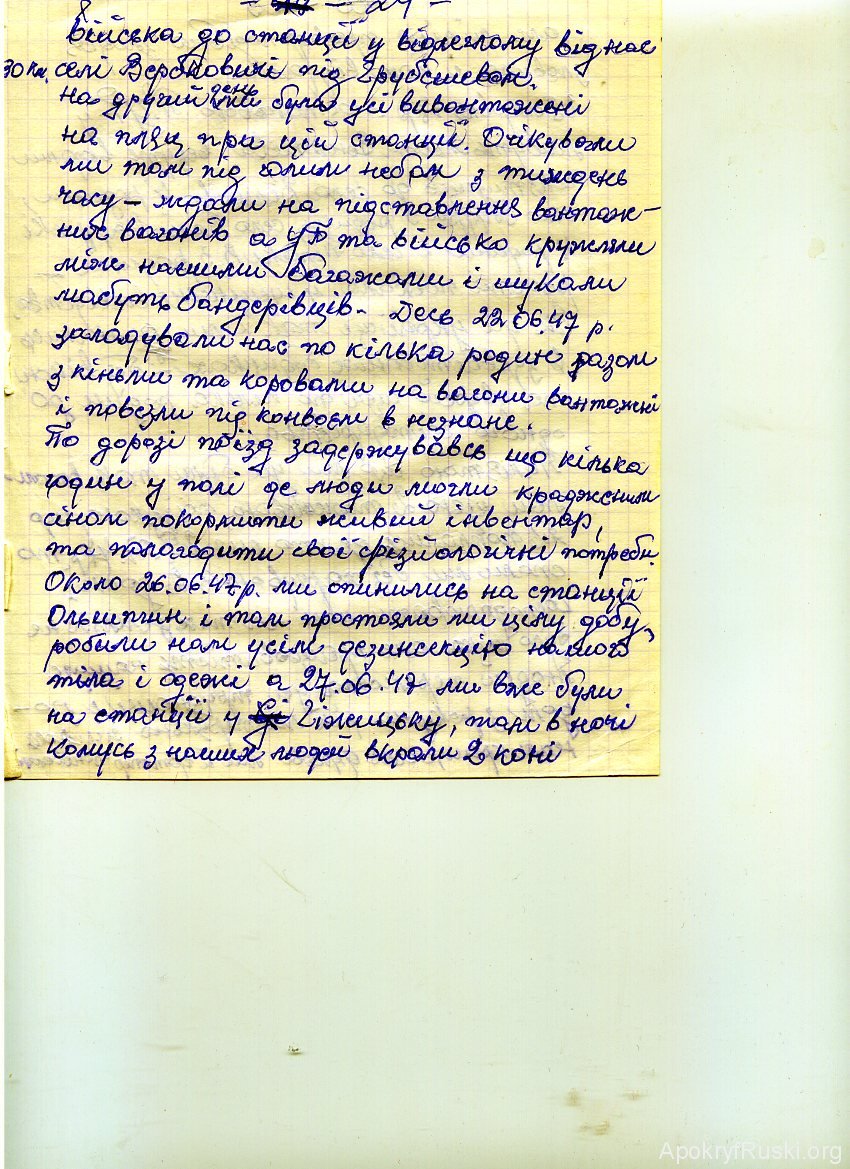 - 24 -
війська до станції у віджеглому від нас
30 км. селі Вербковичі під Грубешевом.
на другий день були усі вивантажені
на пляц при цій станції. Очікували
ми там під голим небом з тиждень
часу – ждали на підставлення вантаж-
них вагонів а УБ та військо кружляли
між нашими багажами і шукали
мабуть бандерівців - Десь 22.06.47 р.
заладували нас по кілька родин разом
з кіньми та коровами на вагони вантажні
і повезли під конвоєм в незнане.
По дорозі поїзд задержувавсь що кілька
годин у полі де люди могли крадженим
сіном покормити живий інвентар,
та полагодити свої фізйологічні потреби.
Около 26.06.47р. ми опинились на станції
Ольштин і там простояли ми цілу добу,
робили нам усім дезинсекцію нашого
тіла і одежі а 27.06.47 ми вже були
на станції у Гіжицьку, там в ночі
комусь з наших людей вкрали 2 коні
ApokryfRuski.org